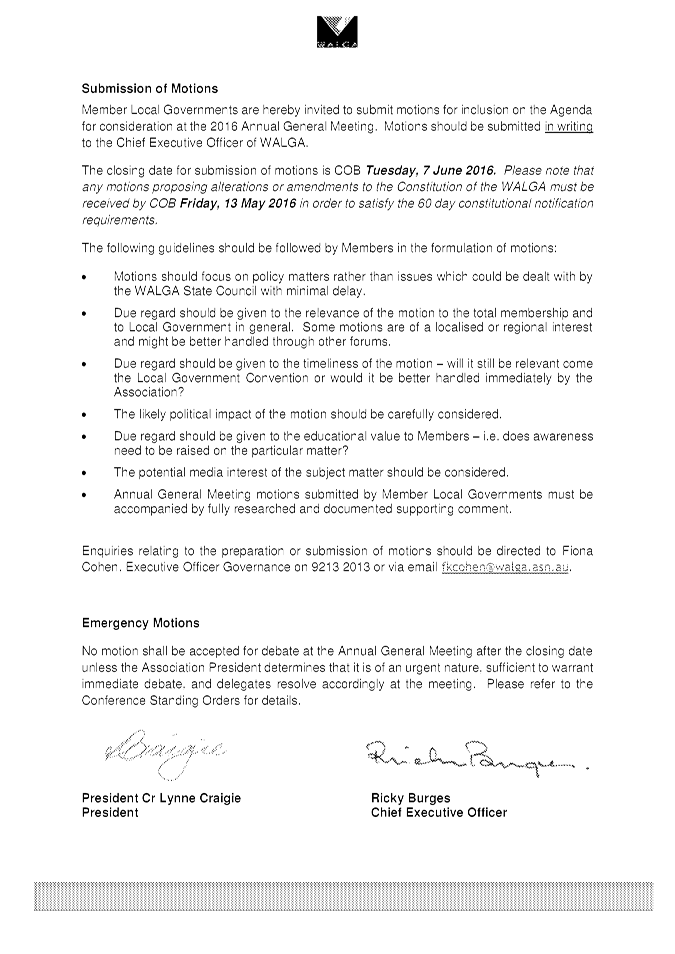 WALGA
Submission of Motions
Member Local Governments are hereby invited to submit motions for inclusion on the Agenda
for consideration at the 2016 Annual General Meeting. Motions should be submitted in writing
to the Chief Executive Officer of WALGA.
The closing date for submission of motions is COB Tuesday, 7 June 2016. Please note that
any motions proposing alterations or amendments to the Constitution of the WALGA must be
received by COB Friday, 13 May 2016 in order to satisfy the 60 day constitutional notification
requirements.
The following guidelines should be followed by Members in the formulation of motions:
• Motions should focus on policy matters rather than issues which could be dealt with by
the WALGA State Council with minimal delay.
• Due regard should be given to the relevance of the motion to the total membership and
to Local Government in general. Some motions are of a localised or regional interest
and might be better handled through other forums.
• Due regard should be given to the timeliness of the motion – will it still be relevant come
the Local Government Convention or would it be better handled immediately by the
Association?
• The likely political impact of the motion should be carefully considered.
• Due regard should be given to the educational value to Members – i.e. does awareness
need to be raised on the particular matter?
• The potential media interest of the subject matter should be considered.
• Annual General Meeting motions submitted by Member Local Governments must be
accompanied by fully researched and documented supporting comment.
Enquiries relating to the preparation or submission of motions should be directed to Fiona
Cohen, Executive Officer Governance on 9213 2013 or via email fkcohen@walga.asn.au.
Emergency Motions
No motion shall be accepted for debate at the Annual General Meeting after the closing date
unless the Association President determines that it is of an urgent nature, sufficient to warrant
immediate debate, and delegates resolve accordingly at the meeting. Please refer to the
Conference Standing Orders for details.
President Cr Lynne Craigie Ricky Burges
President Chief Executive Officer